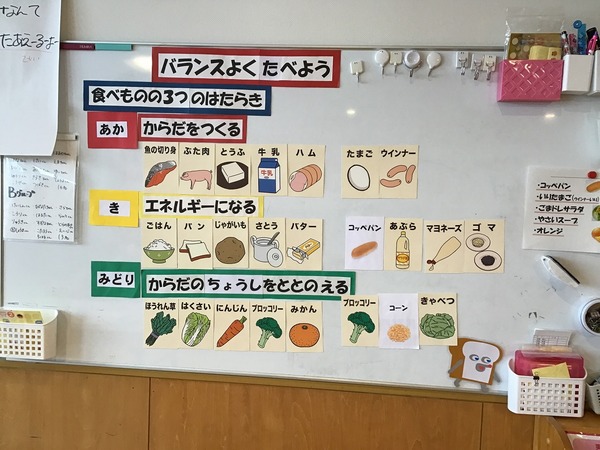 なんて
バランスよく たべよう
食べものの3つ のはたらき
あか からだをつくる
魚の切り身 ぶた肉 とうふ 牛 乳 ハ ム たまご ウインナー
牛乳
き エネルギーになる
ごはん パ ン じゃがいも さとう バター コッペパン あぶら マヨネーズ ゴ マ
みどり からだの ちょうしをととの える
ほうれん草 はくさい にんじん ブロッコリー みかん ブロッコリー コーン きゃべつ
・コッペパン
・いりたまご
・ごまドレサラダ
・やさいスープ
・オレンジ